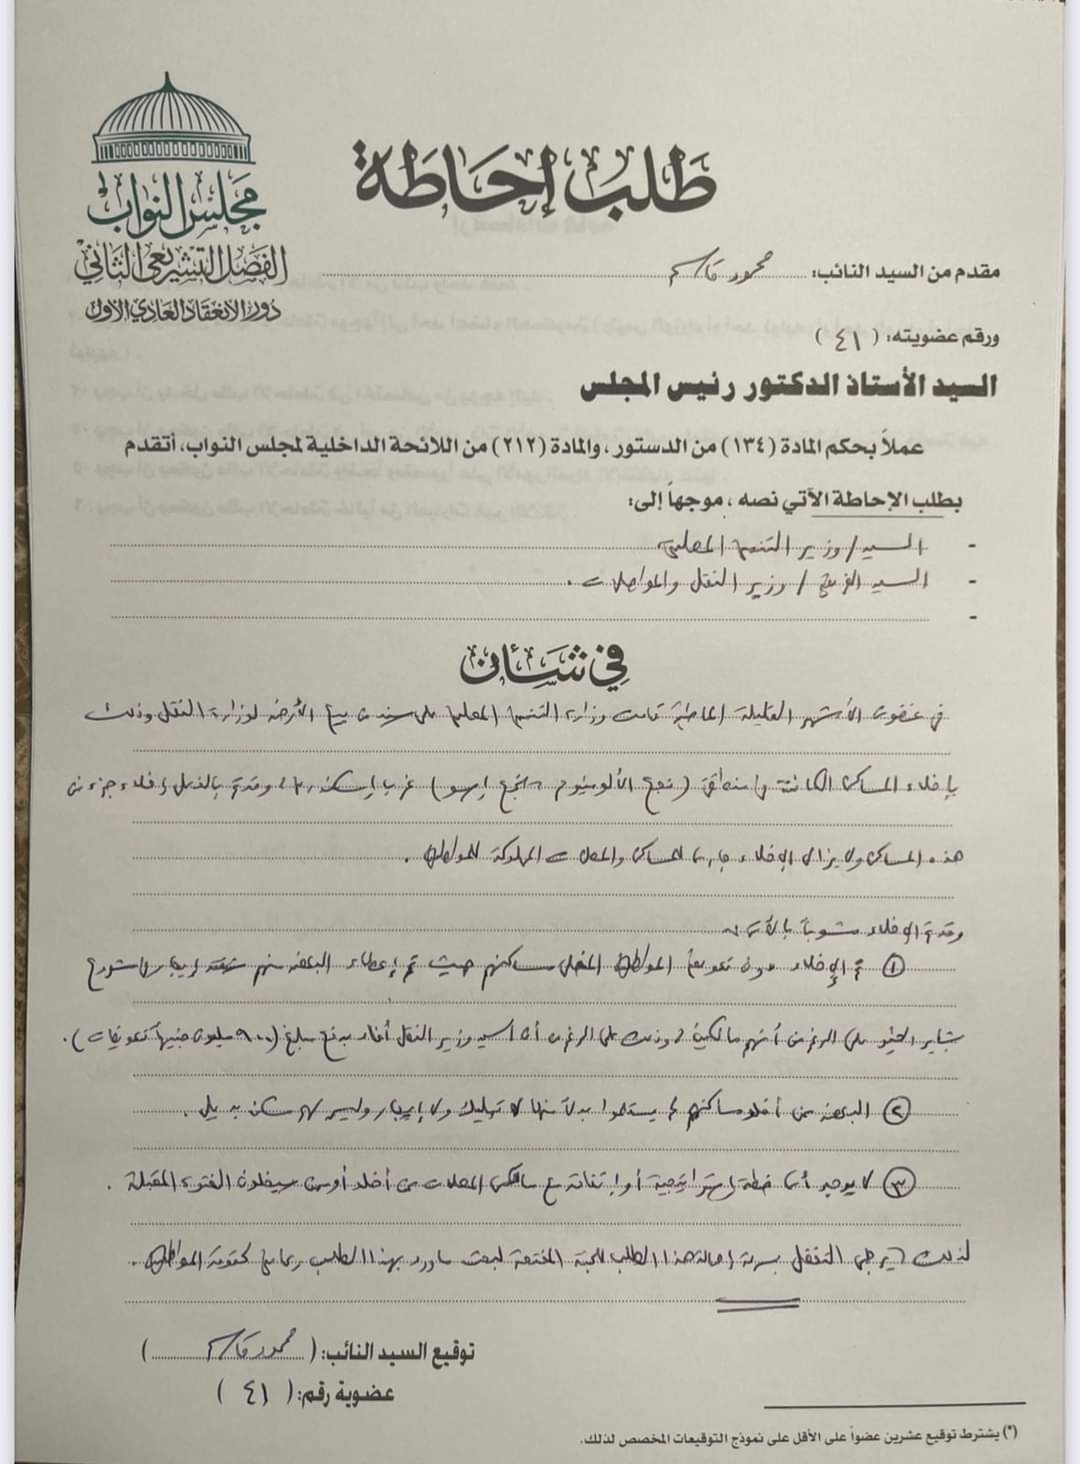 مجلس النواب
الفصل التشريعي الثاني
دور الانعقاد العادي الأول
طلب إحاطة
مقدم من السيد النائب: محمود قاسم
ورقم عضويته: (٤١)
السيد الأستاذ الدكتور رئيس المجلس
عملاً بحكم المادة (١٣٤) من الدستور، والمادة (٢١٢) من اللائحة الداخلية لمجلس النواب، أتقدم
بطلب الإحاطة الآتي نصه، موجهاً إلى:
- السيد/ وزير التنمية المحلية
- السيد الفريق / وزير النقل والمواصلات .
-
في شأن
في غضون الأشهر القليلة الماضية قامت وزارة التنمية المحلية على بيع الأرض لوزارة النقل وذلك
بإخلاء المساكن الكائنة منطقتي (نجع الألومنيوم ) غرب إسكندرية وقد تم بالفعل إخلاء جزء من
هذه المساكن ولا يزال الإخلاء جاريا للمساكن والمحلات المملوكة للمواطنين .
وقد تم الإخلاء مشوباً بالآتي :
١ تم الإخلاء دون تعويض المواطنين مساكنهم حيث تم إعطاء البعض منهم شقة إيجار مشروع
بشاير الخير على الرغم من أنهم مالكين وذلك على الرغم من أن السيد وزير النقل أفاد بدفع مبلغ (٩٠٠ مليون جنيها تعويضات).
٢ البعض ممن أخلو مساكنهم لم يستلموا بدلا منها لا تمليك ولا إيجار وليس لهم سكن بديل .
٣ لا يوجد أي خطة إستراتيجية أو إتفاق مع مالكي المحلات من أخلد أو من سيخلون الفترة المقبلة .
لذلك يرجى التفضل بسرعة إحالة هذا الطلب للجنة المختصة لبحث ما ورد بهذا الطلب المواطنين .
توقيع السيد النائب: (محمود قاسم)
عضوية رقم: (٤١)
(*) يشترط توقيع عشرين عضواً على الأقل على نموذج التوقيعات المخصص لذلك.